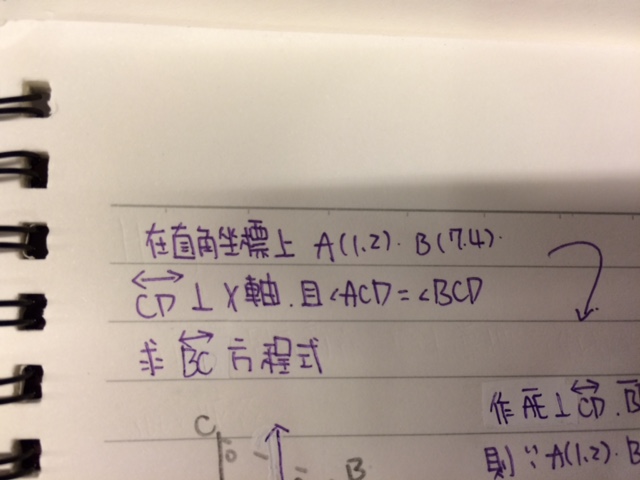 在直角坐標上 A(1.2). B(7.4).
CD ⊥ X軸.且∠ACD=∠BCD
求 BC 方程式
作 AE⊥CD.B
則∵A(1.2).B
C
B